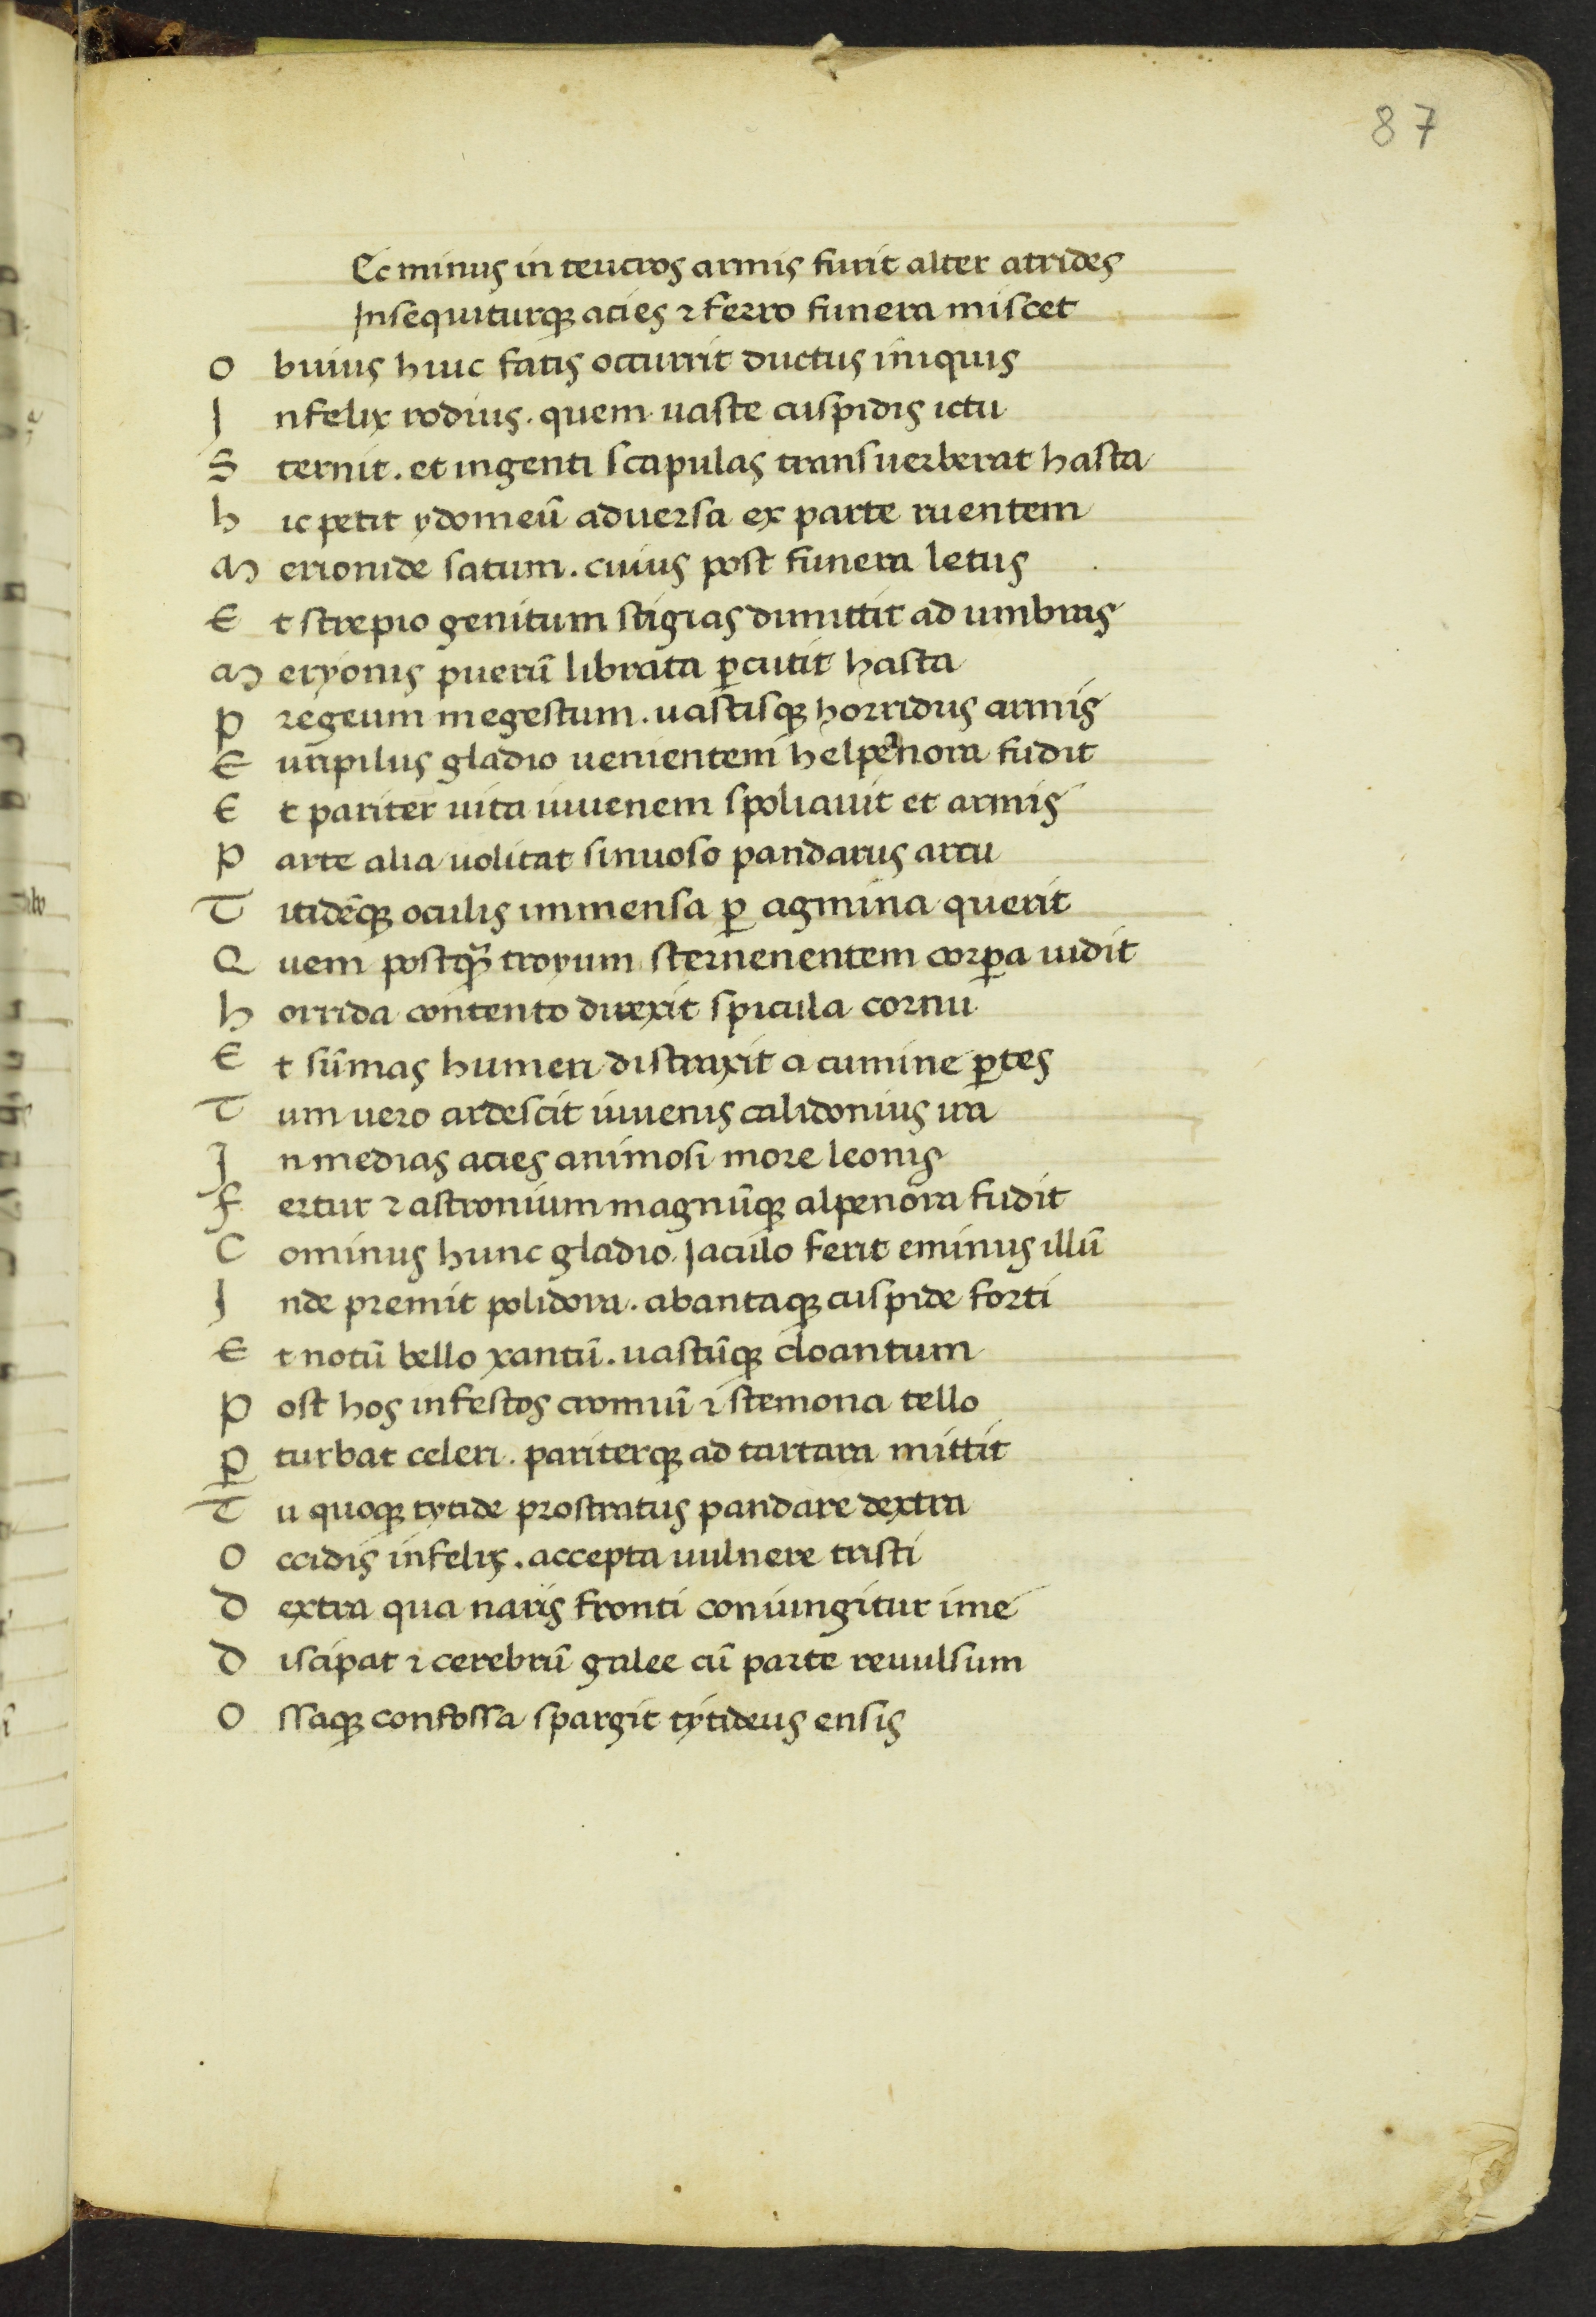 87
Ec minus in teucros armis furit alter atrides
Insequiturqꝫ acies ⁊ ferro funera miscet
O buius huic fatis occurrit ductus iniquis
I nfelix rodius . quem uaste cuspidis ictu
S ternit . et ingenti scapulas transuerberat hasta
h ic petit ydomeū aduersa ex parte ruentem
M erionide satum . cuius post funera letus
E t strepio genitum stigias dimittit ad umbras
M eryonis puerū librata ꝑcutit hasta
P regeum megestum . uastisqꝫ horridus armis
E uripilus gladio uenientem helpenora fudit
E t pariter uita iuuenem spoliauit et armis
P arte alia uolitat sinuoso pandarus arcu
T itidēqꝫ oculis immensa ꝑ agmina querit
Q uem postqꝫ̄ troyum sternenentem corꝑa uidit
h orrida contento direxit spicula cornu
E t sūmas humeri distraxit a cumine ꝑtes
T um uero ardescit iuuenis calidonius ira
I n medias acies animosi more leonis
F ertur ⁊ astronium magnūqꝫ alpenora fudit
C ominus hunc gladio . Iaculo ferit eminus illū
I nde premit polidora . abantaqꝫ cuspide forti
E t notū bello xantū . uastūqꝫ cloantum
P ost hos infestos cromiū ⁊ stemona tello
ꝑ turbat celeri . pariterqꝫ ad tartara mittit
T u quoqꝫ tytide prostratus pandare dextra
O ccidis infelix . accepta uulnere tristi
D extra qua naris fronti coniungitur ime
D iscipat ⁊ cerebrū galee cū parte reuulsum
O ssaqꝫ confossa spargit tytideus ensis